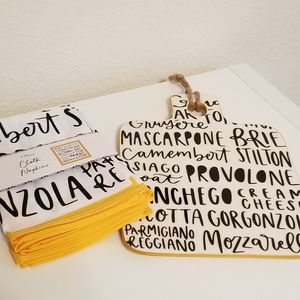 bert S
Cloth
Napkins
PAR
NZOLA RE
GRUYERE
MASCARPONE BRIE
Camembert STILTON
SIAGO PROVOLONE
oat
NCHEGO CREAM
CHEESE
COTTA GORGONZO
PARMIGIANO
REGGIANO Mozzarell